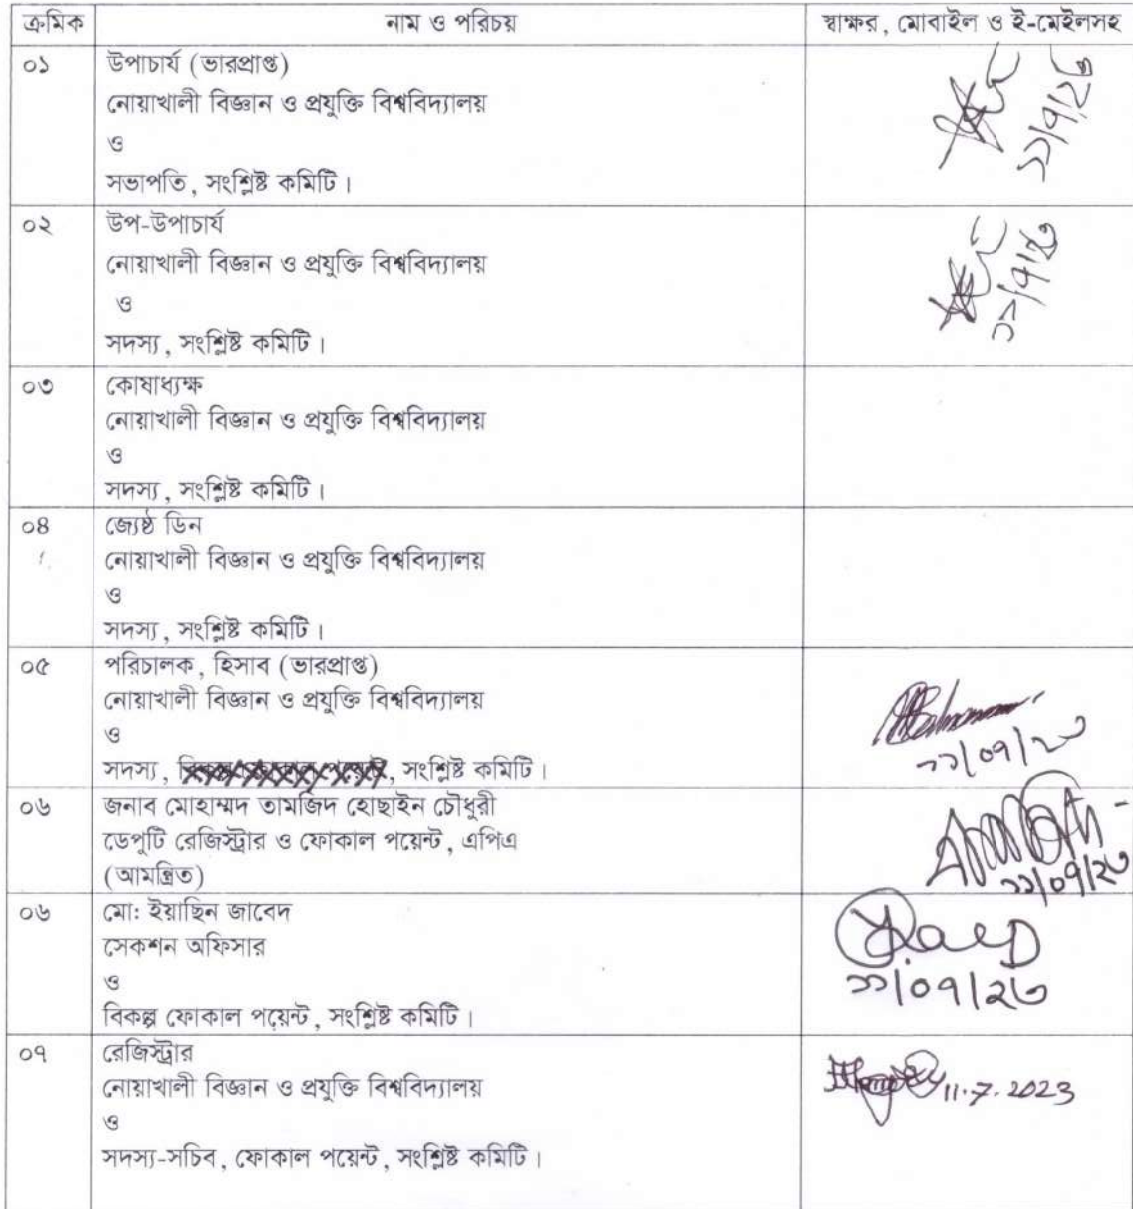 ক্রমিক নাম ও পরিচয় স্বাক্ষর, মোবাইল ও ই-মেইলসহ
০১ উপাচার্য (ভারপ্রাপ্ত)
নোয়াখালী বিজ্ঞান ও প্রযুক্তি বিশ্ববিদ্যালয়
ও
সভাপতি, সংশ্লিষ্ট কমিটি।
১১/৭/২৩
০২ উপ-উপাচার্য
নোয়াখালী বিজ্ঞান ও প্রযুক্তি বিশ্ববিদ্যালয়
ও
সদস্য, সংশ্লিষ্ট কমিটি।
১১/৭/২৩
০৩ কোষাধ্যক্ষ
নোয়াখালী বিজ্ঞান ও প্রযুক্তি বিশ্ববিদ্যালয়
ও
সদস্য, সংশ্লিষ্ট কমিটি।
০৪ জ্যেষ্ঠ ডিন
নোয়াখালী বিজ্ঞান ও প্রযুক্তি বিশ্ববিদ্যালয়
ও
সদস্য, সংশ্লিষ্ট কমিটি।
০৫ পরিচালক, হিসাব (ভারপ্রাপ্ত)
নোয়াখালী বিজ্ঞান ও প্রযুক্তি বিশ্ববিদ্যালয়
ও
সদস্য, সংশ্লিষ্ট কমিটি।
১১/০৭/২৩
০৬ জনাব মোহাম্মদ তামজিদ হোছাইন চৌধুরী
ডেপুটি রেজিস্ট্রার ও ফোকাল পয়েন্ট, এপিএ
(আমন্ত্রিত)
১১/০৭/২৩
০৬ মো: ইয়াছিন জাবেদ
সেকশন অফিসার
ও
বিকল্প ফোকাল পয়েন্ট, সংশ্লিষ্ট কমিটি।
১১/০৭/২৩
০৭ রেজিস্ট্রার
নোয়াখালী বিজ্ঞান ও প্রযুক্তি বিশ্ববিদ্যালয়
ও
সদস্য-সচিব, ফোকাল পয়েন্ট, সংশ্লিষ্ট কমিটি।
11.7.2023